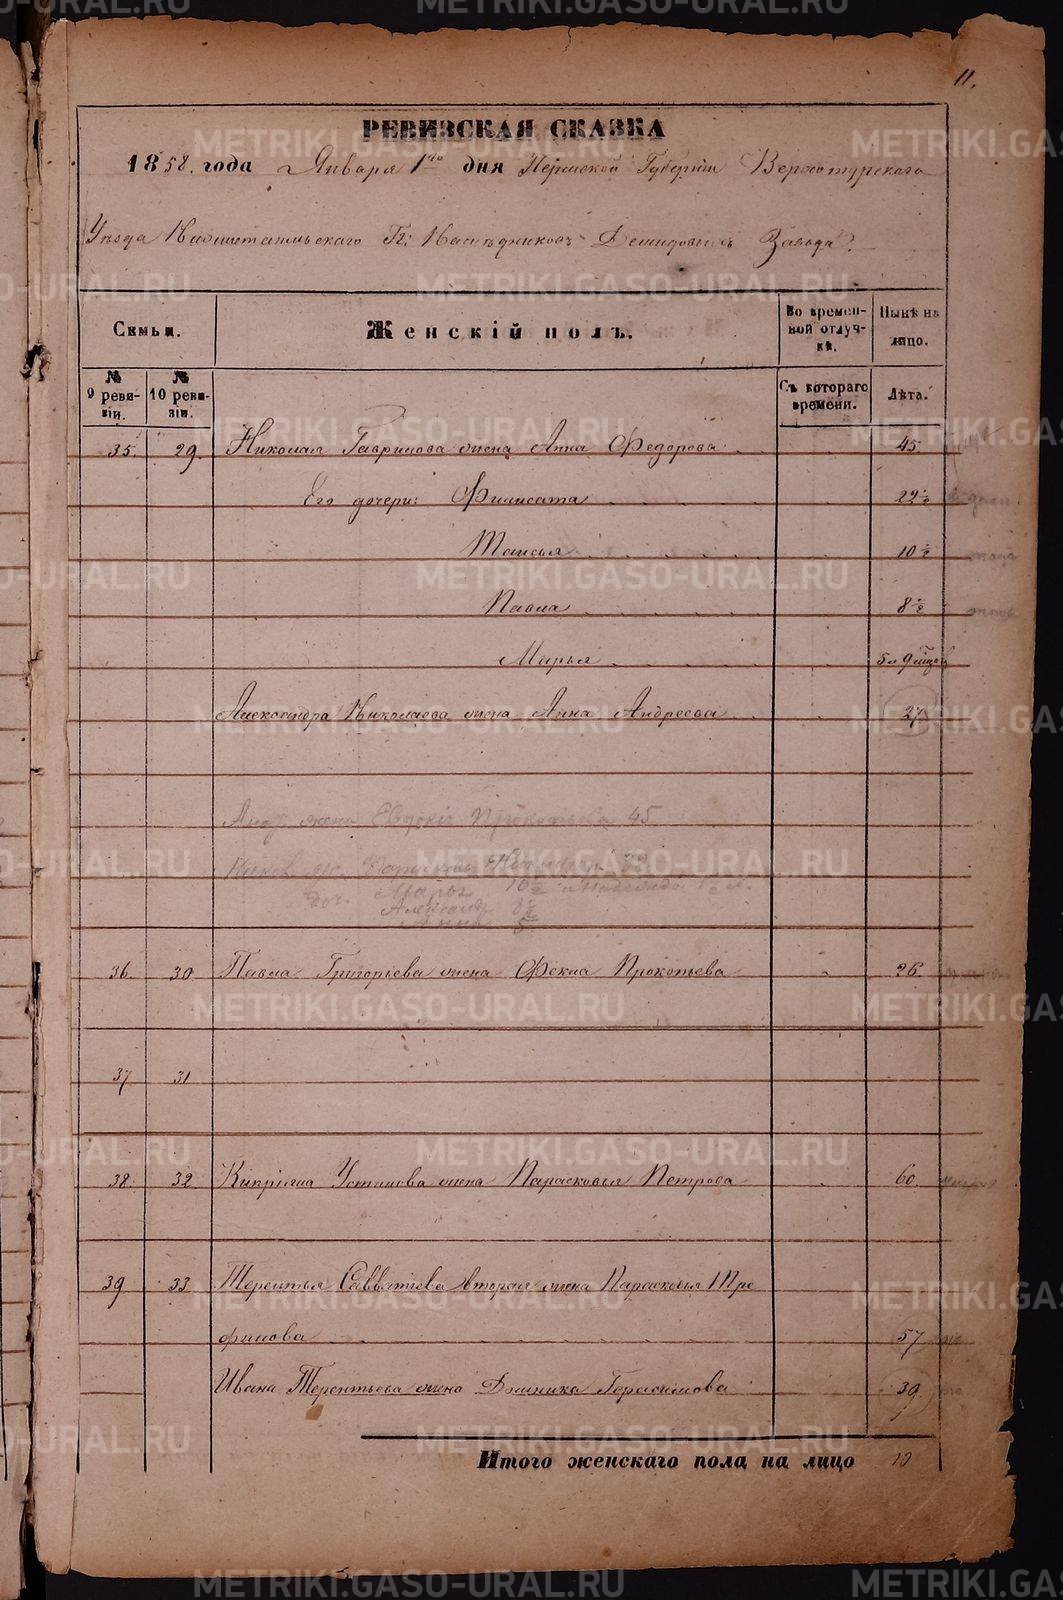 11.
РЕВИЗСКАЯ СКАЗКА
1858. года Января 1го дня Пермской Губерніи Верхотурскаго
Уѣзда Висимошайтанскаго Гг: Наслѣдниковъ Демидовыхъ Завода.
Семьи.
Женскій полъ.
Во времен-
ной отлуч-
кѣ.
Нынѣ на
лицо.
№
9 реви-
зіи.
№
10 реви-
зіи.
Съ котораго
времени.
Лѣта.
35. 29. Николая Гаврилова жена Анна Федорова 45.
Его дочери: Филисата 22½
Таисья 10½
Павла 8½
Марья 5 и 9
Александра Николаева жена Анна Андреева 27
жена Евдокія Прокопьева 45
Марья 10½
8½
Анна 5
36. 30 Павла Григорьева жена Фекла Прокопьева 26.
37 31
38. 32 Кипріяна Устинова жена Парасковья Петрова 60.
39 33 Терентья Савватіева вторая жена Парасковья Тре
филова 57
Ивана Терентьева жена Домника Герасимова 39
Итого женскаго пола на лицо 10
METRIKI.GASO-URAL.RU